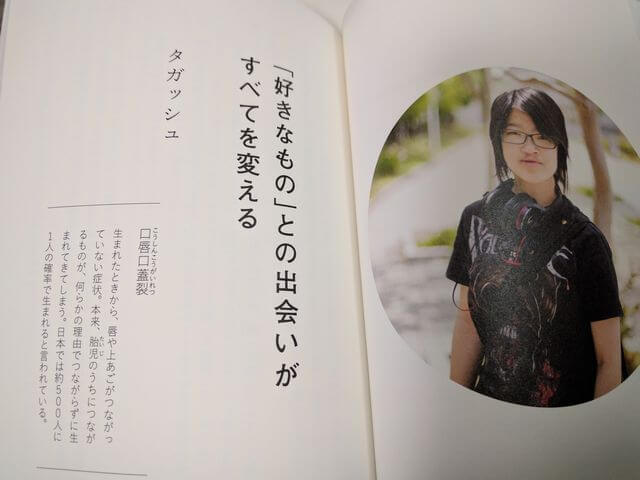 「好きなもの」との出会いが
すべてを変える
タガッシュ
こうしんこうがいれつ
口唇口蓋裂
生まれたときから、唇や上あごがつながっ
ていない症状。本来、胎児のうちにつなが
たいじ
るものが、何らかの理由でつながらずに生
まれてきてしまう。日本では約500人に
1人の確率で生まれると言われている。